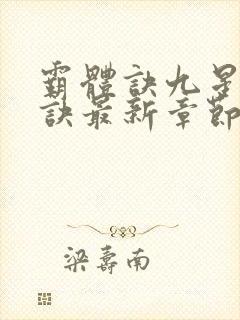 霸體訣九星
訣最新章節
梁壽南